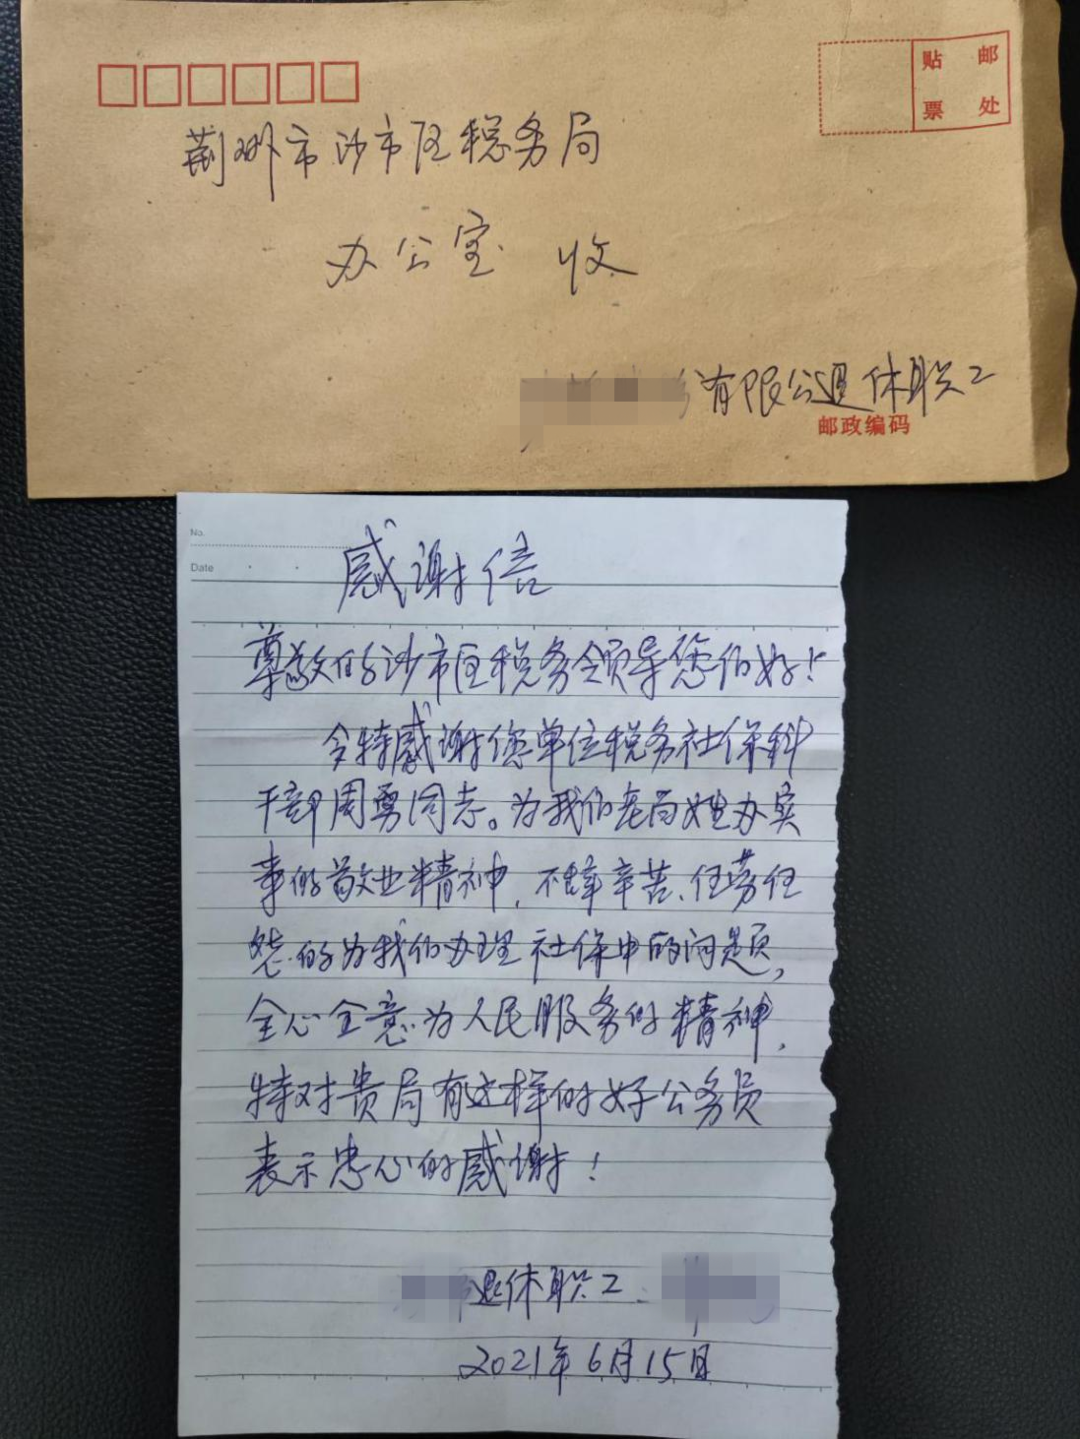 贴 邮
票 处
荆州市沙市区税务局
办公室 收
有限公退休职工
邮政编码
No.
Date
感谢信
尊敬的沙市区税务领导您们好!
今特感谢您单位税务社保科
干部周勇同志。为我们老百姓办实
事的敬业精神,不辞辛苦、任劳任
怨的为我们办理社保中的问题,
全心全意为人民服务的精神,
特对贵局有这样的好公务员
表示忠心的感谢!
退休职工
2021年6月15日